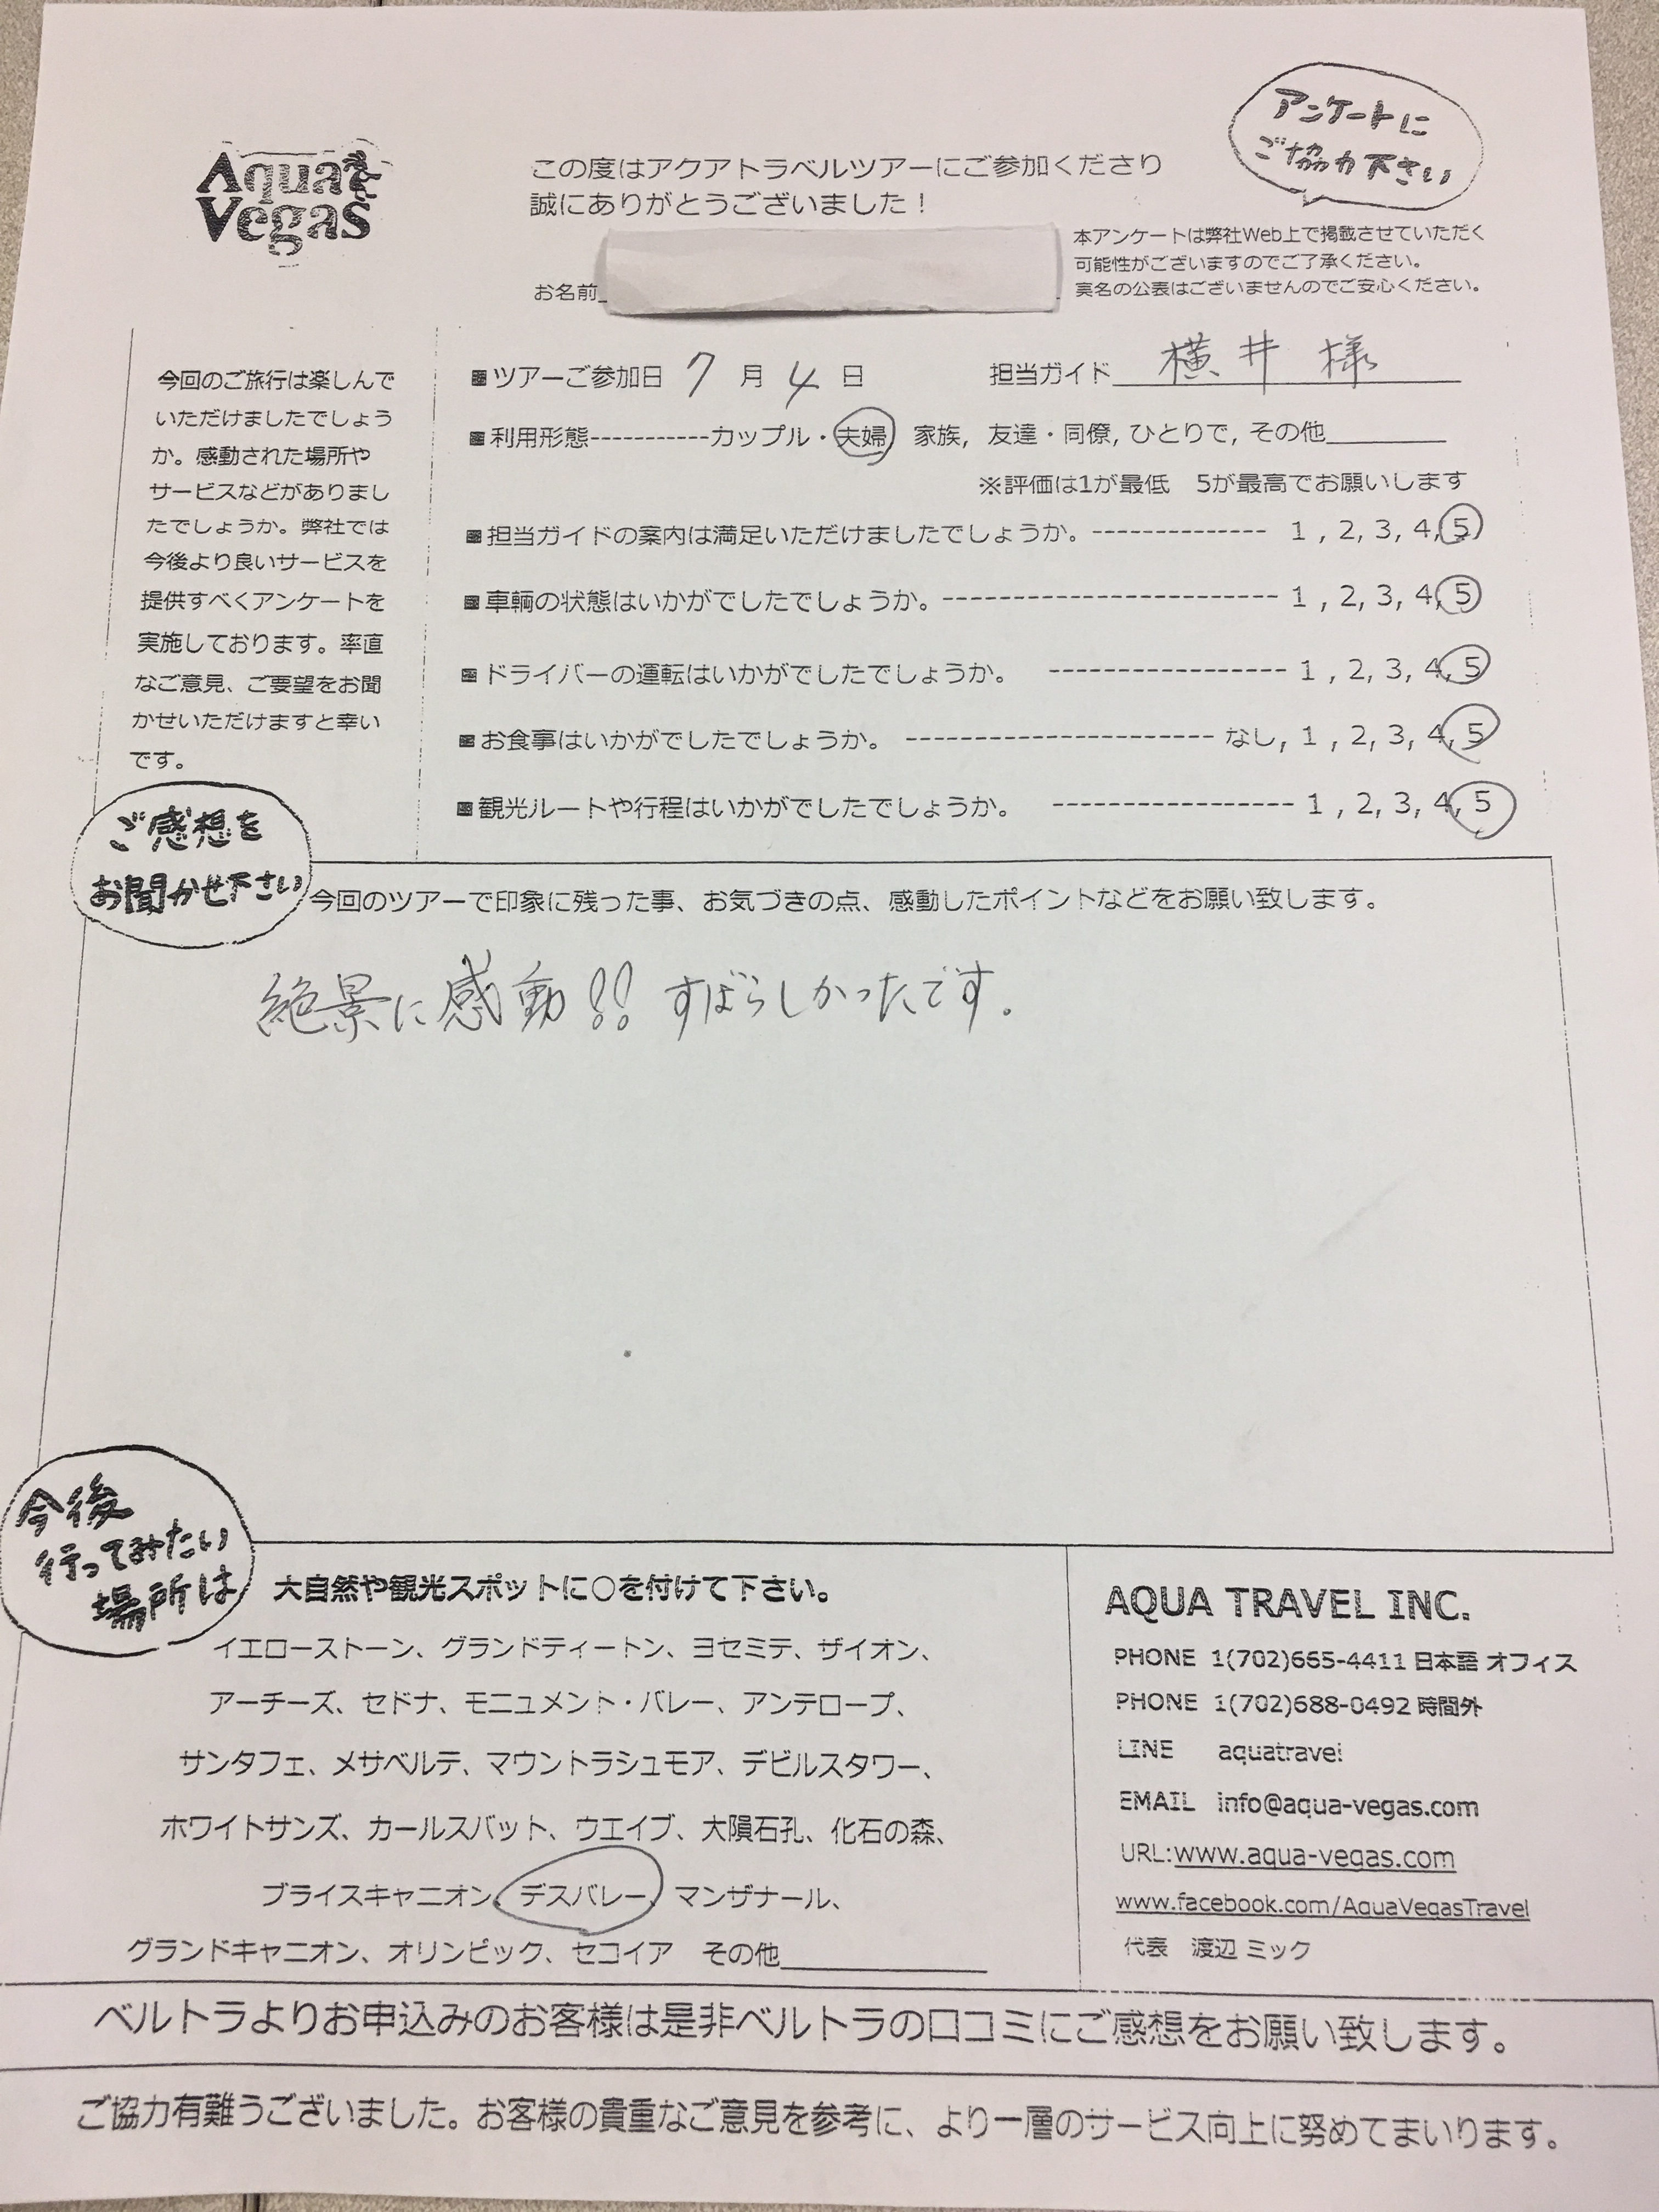 アンケートに
ご協力下さい
Aqua
Vegas
この度はアクアトラベルツアーにご参加くださり
誠にありがとうございました！
本アンケートは弊社Web上で掲載させていただく
可能性がございますのでご了承ください。
実名の公表はございませんのでご安心ください。
お名前
今回のご旅行は楽しんで
いただけましたでしょう
か。感動された場所や
サービスなどがありまし
たでしょうか。弊社では
今後より良いサービスを
提供すべくアンケートを
実施しております。率直
なご意見、ご要望をお聞
かせいただけますと幸い
です。
■ツアーご参加日 7 月 4 日 担当ガイド 横井 様
■利用形態-----------カップル・夫婦 家族, 友達・同僚, ひとりで, その他________
※評価は1が最低 5が最高でお願いします
■担当ガイドの案内は満足いただけましたでしょうか。-------------- 1 , 2, 3, 4, 5
■車輌の状態はいかがでしたでしょうか。--------------------------- 1 , 2, 3, 4, 5
■ドライバーの運転はいかがでしたでしょうか。 ------------------- 1 , 2, 3, 4, 5
■お食事はいかがでしたでしょうか。 ------------------------- なし, 1 , 2, 3, 4, 5
■観光ルートや行程はいかがでしたでしょうか。 ------------------- 1 , 2, 3, 4, 5
ご感想を
お聞かせ下さい
今回のツアーで印象に残った事、お気づきの点、感動したポイントなどをお願い致します。
絶景に感動!! すばらしかったです。
今後
行ってみたい
場所は
大自然や観光スポットに○を付けて下さい。
イエローストーン、グランドティートン、ヨセミテ、ザイオン、
アーチーズ、セドナ、モニュメント・バレー、アンテロープ、
サンタフェ、メサベルテ、マウントラシュモア、デビルスタワー、
ホワイトサンズ、カールスバット、ウエイブ、大隕石孔、化石の森、
ブライスキャニオン、デスバレー、マンザナール、
グランドキャニオン、オリンピック、セコイア その他______________
AQUA TRAVEL INC.
PHONE 1(702)665-4411 日本語 オフィス
PHONE 1(702)688-0492 時間外
LINE aquatravel
EMAIL info@aqua-vegas.com
URL:www.aqua-vegas.com
www.facebook.com/AquaVegasTravel
代表 渡辺 ミック
ベルトラよりお申込みのお客様は是非ベルトラの口コミにご感想をお願い致します。
ご協力有難うございました。お客様の貴重なご意見を参考に、より一層のサービス向上に努めてまいります。